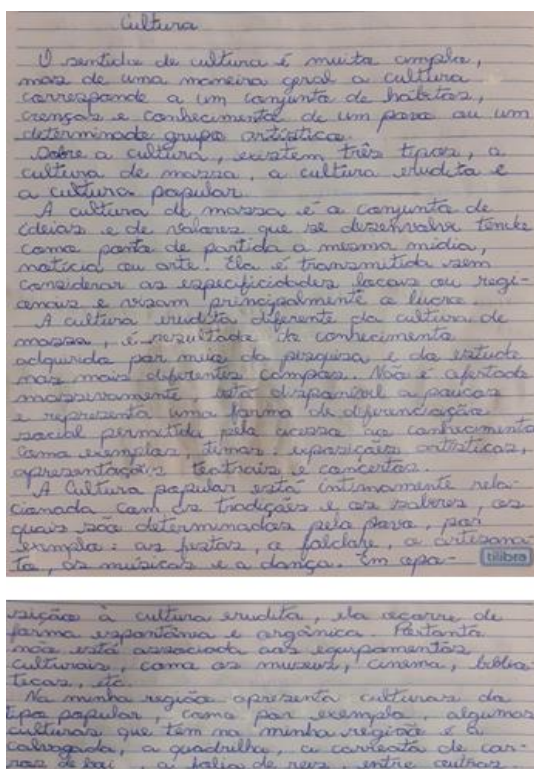 Cultura
O sentido de cultura é muito amplo,
mas de uma maneira geral a cultura
corresponde a um conjunto de hábitos,
crenças e conhecimento de um povo ou um
determinado grupo artístico.
Sobre a cultura, existem três tipos, a
cultura de massa, a cultura erudita e
a cultura popular.
A cultura de massa é o conjunto de
ideias e de valores que se desenvolve tendo
como ponto de partida a mesma mídia,
notícia ou arte. Ela é transmitida sem
considerar as especificidades locais ou regi-
onais e visam principalmente o lucro.
A cultura erudita diferente da cultura de
massa, é resultado do conhecimento
adquirido por meio da pesquisa e do estudo
nos mais diferentes campos. Não é ofertado
massivamente está disponível a poucos
e representa uma forma de diferenciação
social permitida pelo acesso ao conhecimento
como exemplos, temos: exposições artísticas,
apresentações teatrais e concertos.
A Cultura popular está intimamente rela-
cionada com as tradições e os saberes, os
quais são determinados pelo povo, por
exemplo: as festas, o folclore, o artesana-
to, as músicas e a dança. Em opo-
tilibra
sição à cultura erudita, ela ocorre de
forma espontânea e orgânica. Portanto
não está associada aos equipamentos
culturais, como os museus, cinema, biblio-
tecas, etc.
Na minha região apresenta culturas do
tipo popular, como por exemplo, algumas
culturas que têm na minha região é a
cavalgada, a quadrilha, a carreata de car-
ros de boi, a folia de reis, entre outras.